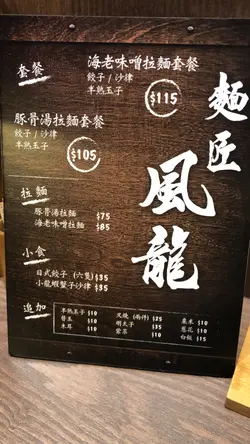 麵匠
風龍
套餐
海老味噌拉麵套餐
餃子 / 沙律
半熟玉子
$115
豚骨湯拉麵套餐
餃子 / 沙律
半熟玉子
$105
拉麵
豚骨湯拉麵 $75
海老味噌拉麵 $85
小食
日式餃子 (六隻) $35
小龍蝦蟹子沙律 $35
追加
半熟玉子 $10
替玉 $10
木耳 $10
叉燒 (兩件) $25
明太子 $35
紫菜 $10
粟米 $10
蔥花 $10
白飯 $15